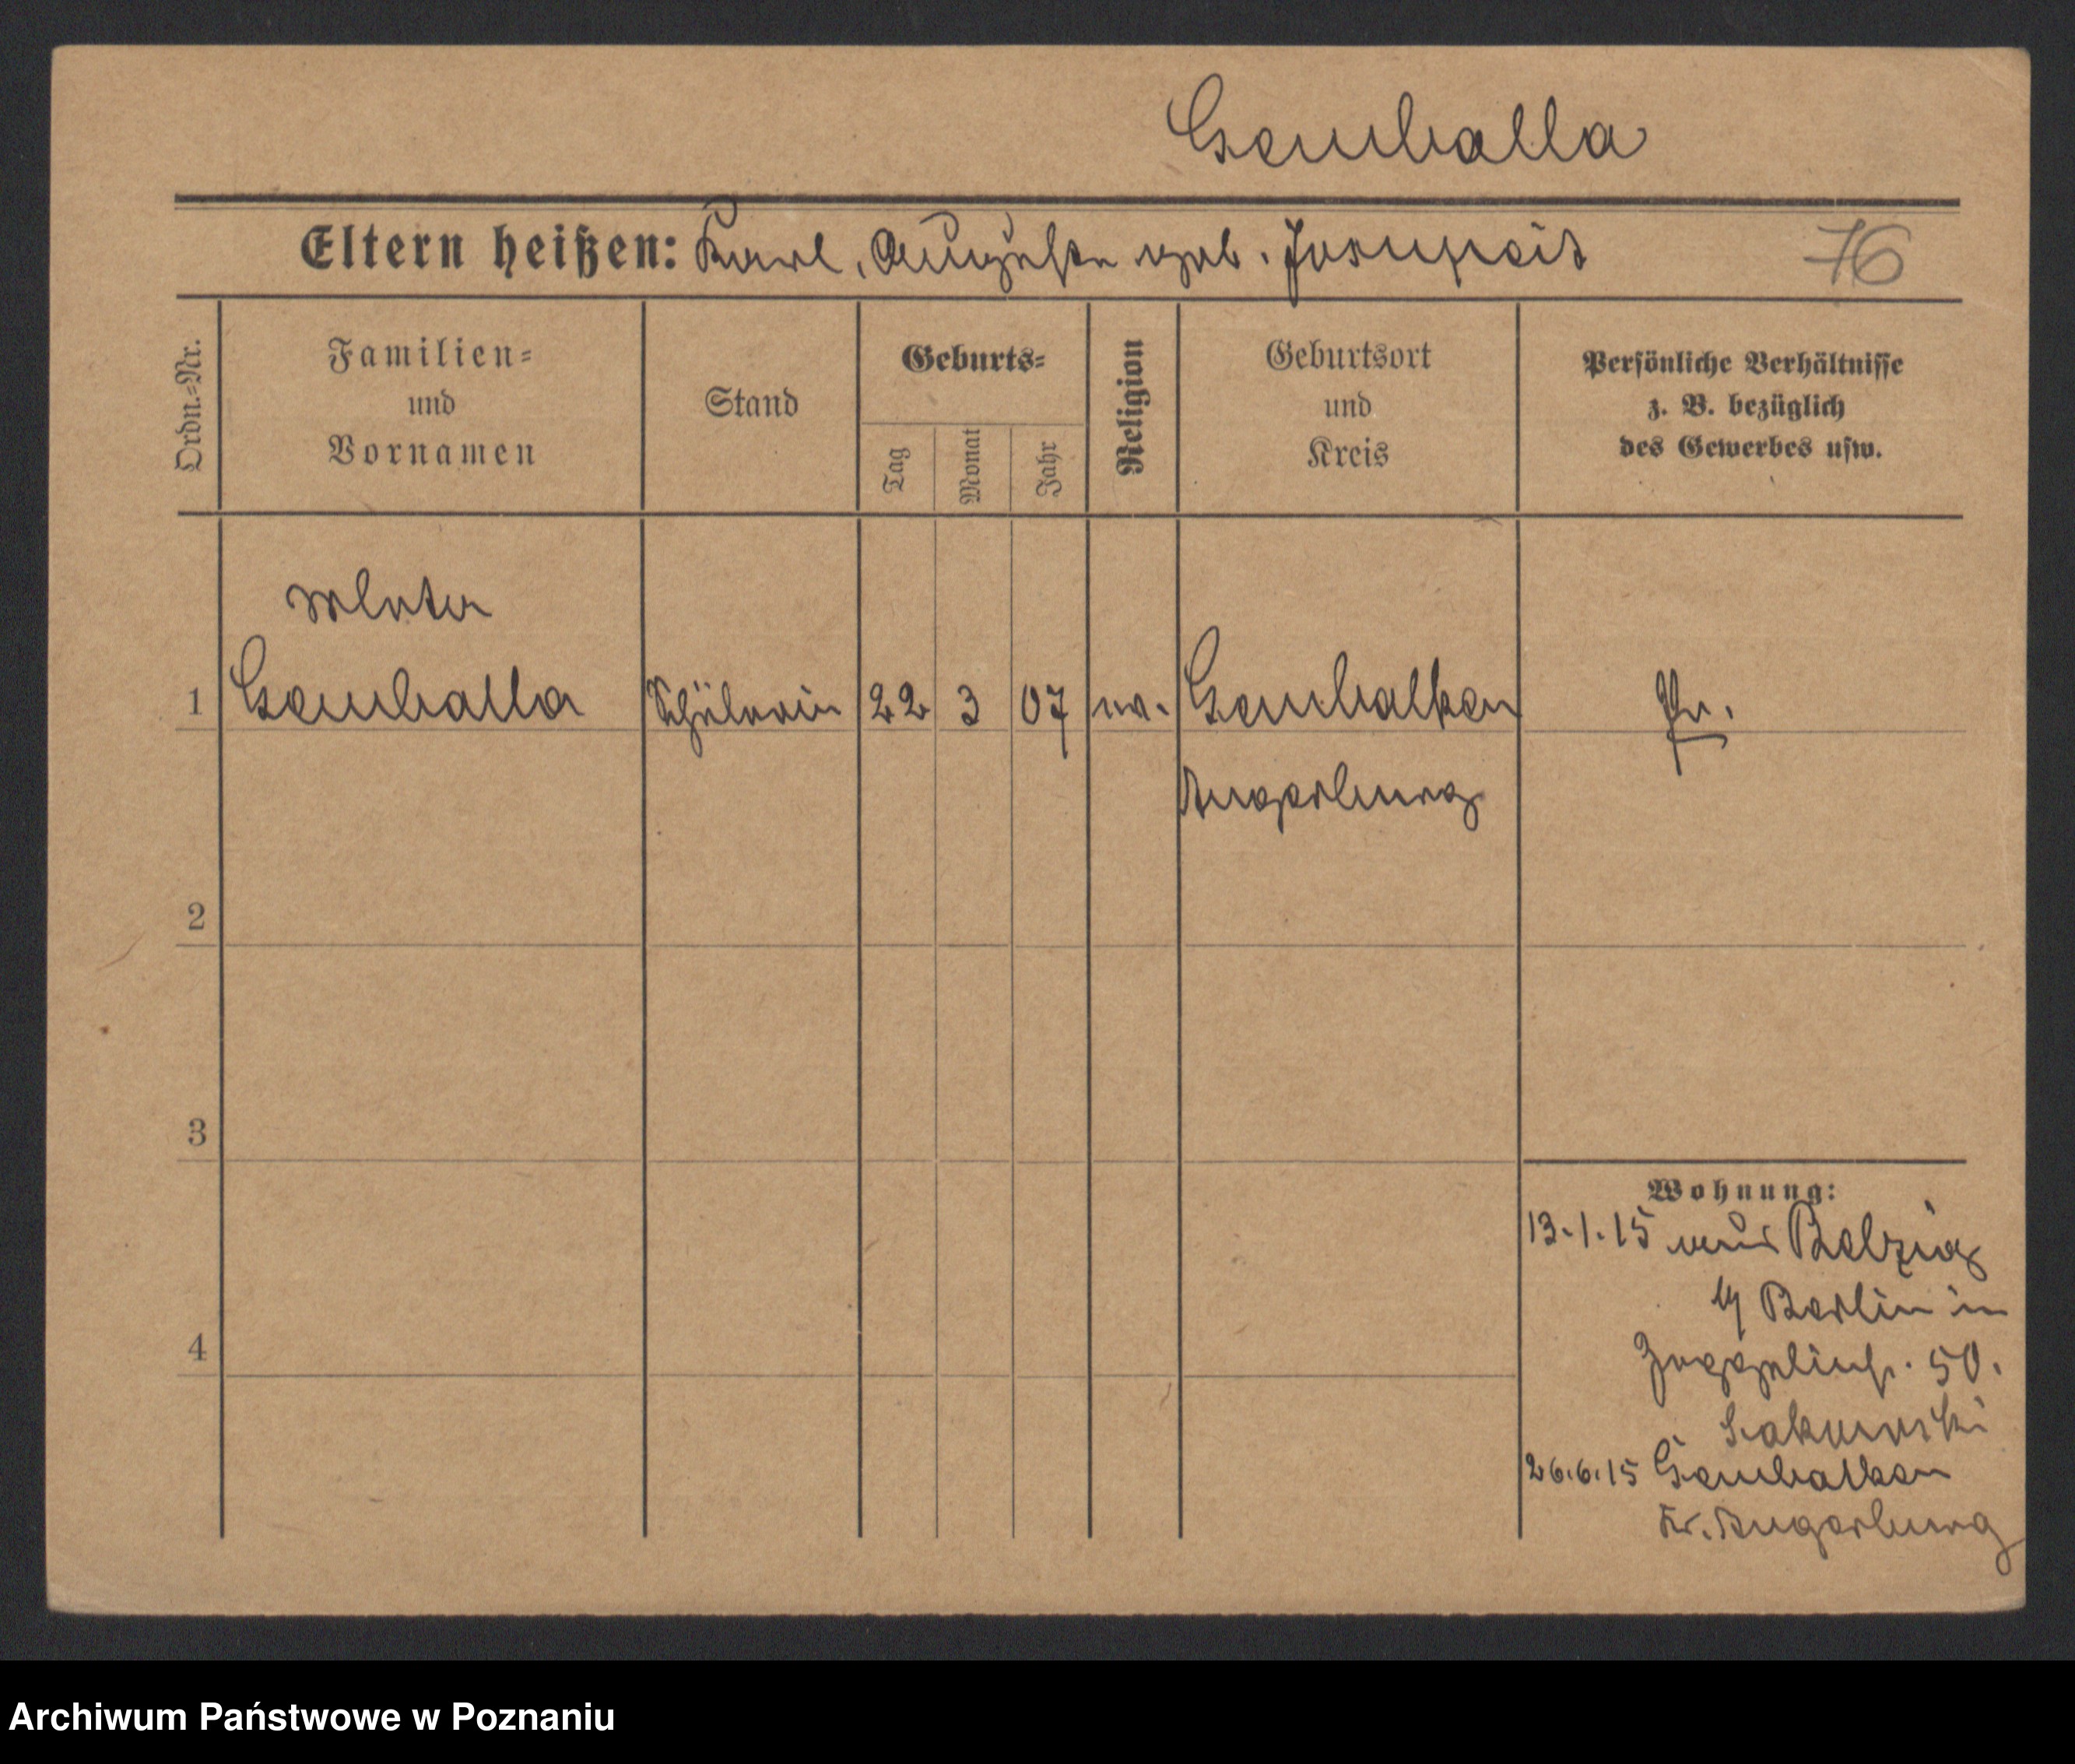 Gemballa
Eltern heißen: Karl, Auguste geb. Jorupeit
76
Ordn.=Nr.
Familien=
und
Vornamen
Stand
Geburts=
Tag
Monat
Jahr
Religion
Geburtsort
und
Kreis
Persönliche Verhältnisse
z. B. bezüglich
des Gewerbes usw.
1
Gemballa
Schülerin
22
3
07
ev.
Gembalken
Angerburg
Pr.
2
3
4
Wohnung:
13.1.15 aus Belzig
b/ Berlin in
Zeppelinstr. 50.
26.6.15 Gembalken
Kr. Angerburg
Archiwum Państwowe w Poznaniu